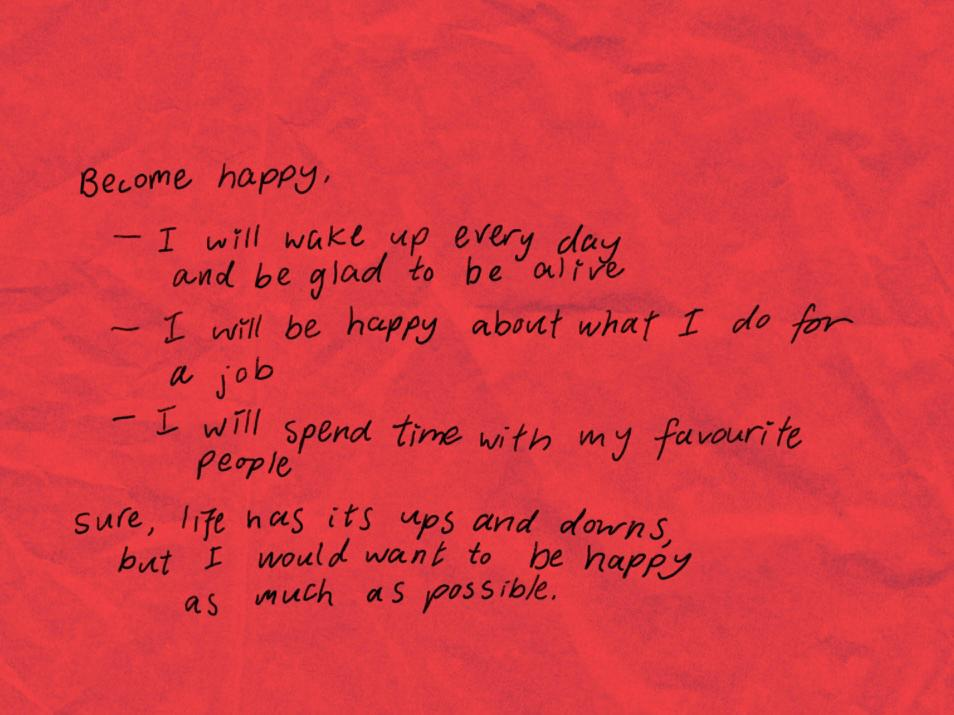 Become happy.
— I will wake up every day
and be glad to be alive
— I will be happy about what I do for
a job
— I will spend time with my favourite
people
sure, life has its ups and downs,
but I would want to be happy
as much as possible.